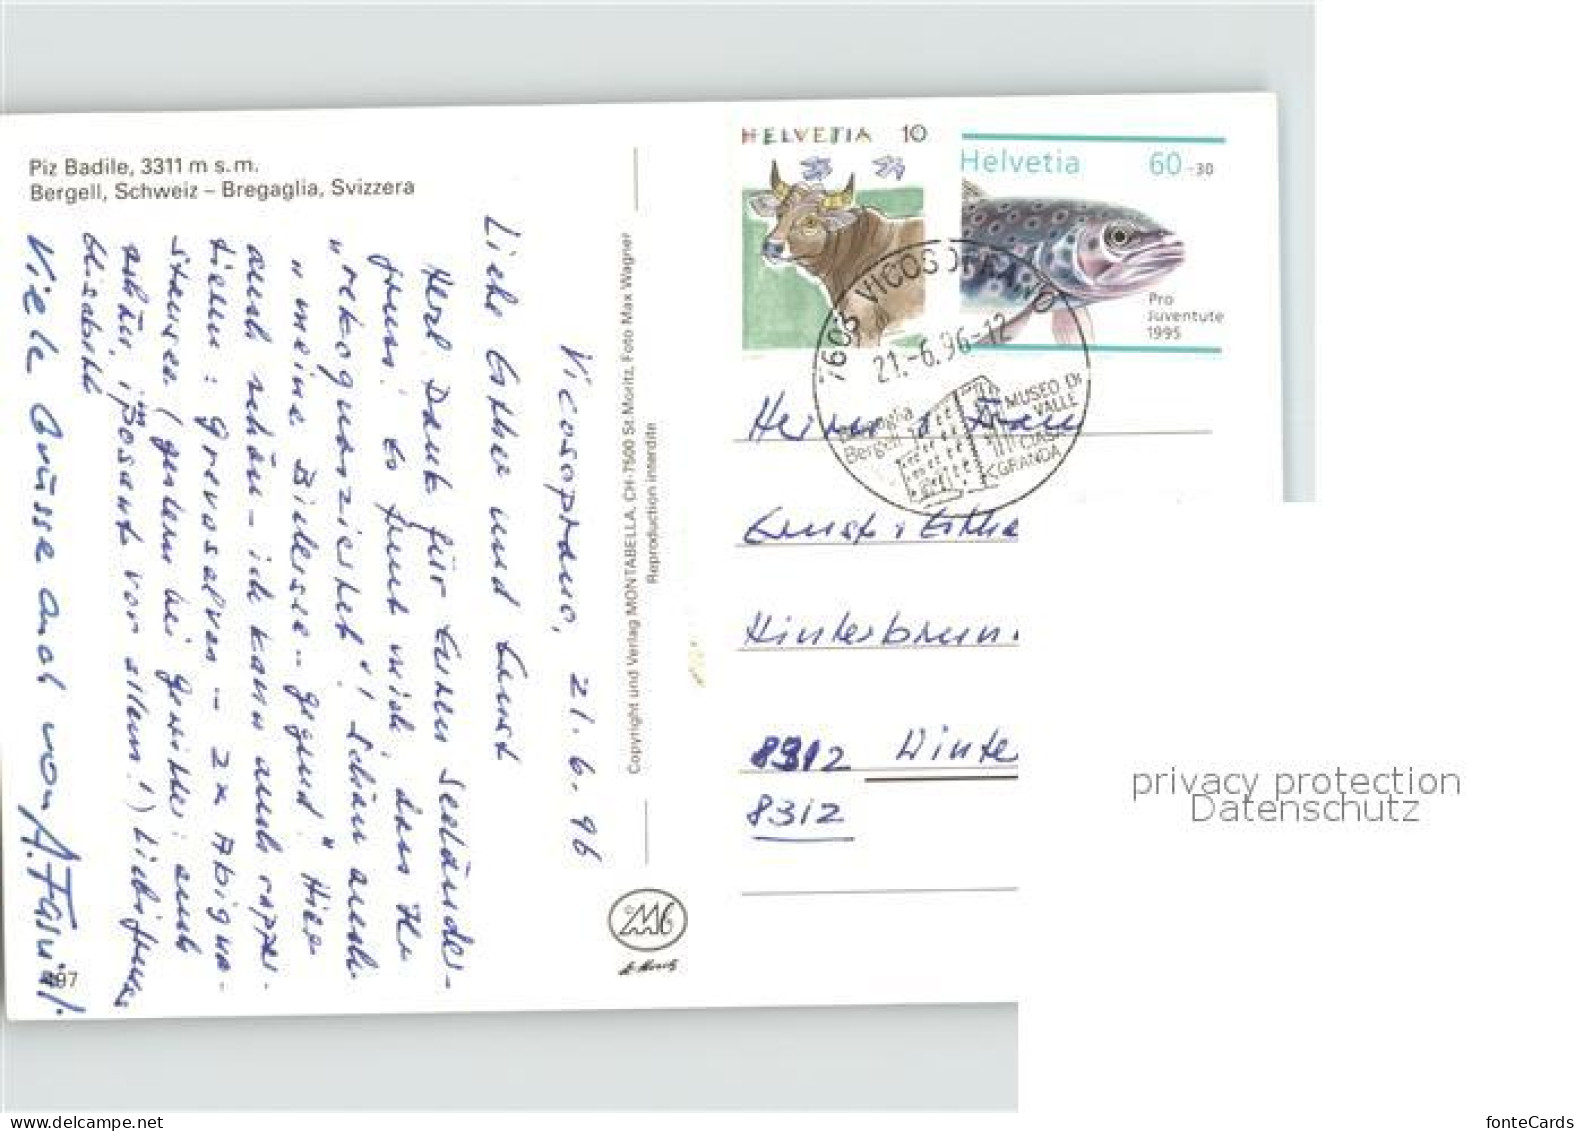 Piz Badile, 3311 m s.m.
Bergell, Schweiz – Bregaglia, Svizzera
Vicosoprano, 21.6.96
Liebe Esther und Ernst
Herzl. Dank für Euren Seeländer-
gruss! Es freut mich, dass Ihr
"rekognosziertet"! Schön auch
"meine Bielersee-gegend" Hier
auch schön – ich kann auch
tieren: Grevasalvas – 2x
steursee (gestern bei Gewitter: auch
schön, im Bosant vor allem!) Liebi Gruss
Elisabeth
Viele Grüsse auch von
497
Copyright und Verlag MONTABELLA, CH-7500 St. Moritz, Foto Max Wagner
Reproduction interdite
St. Moritz
HELVETIA 10
Helvetia 60 -30
Pro
Juventute
1995
7603 VICOSOPRANO
21.-6.96-12
Bregaglia
Bergell
MUSEO DI
VALLE
CIASA
GRANDA
Ernst + Esther
8312 Winte
8312
privacy protection
Datenschutz
www.delcampe.net
fonteCards